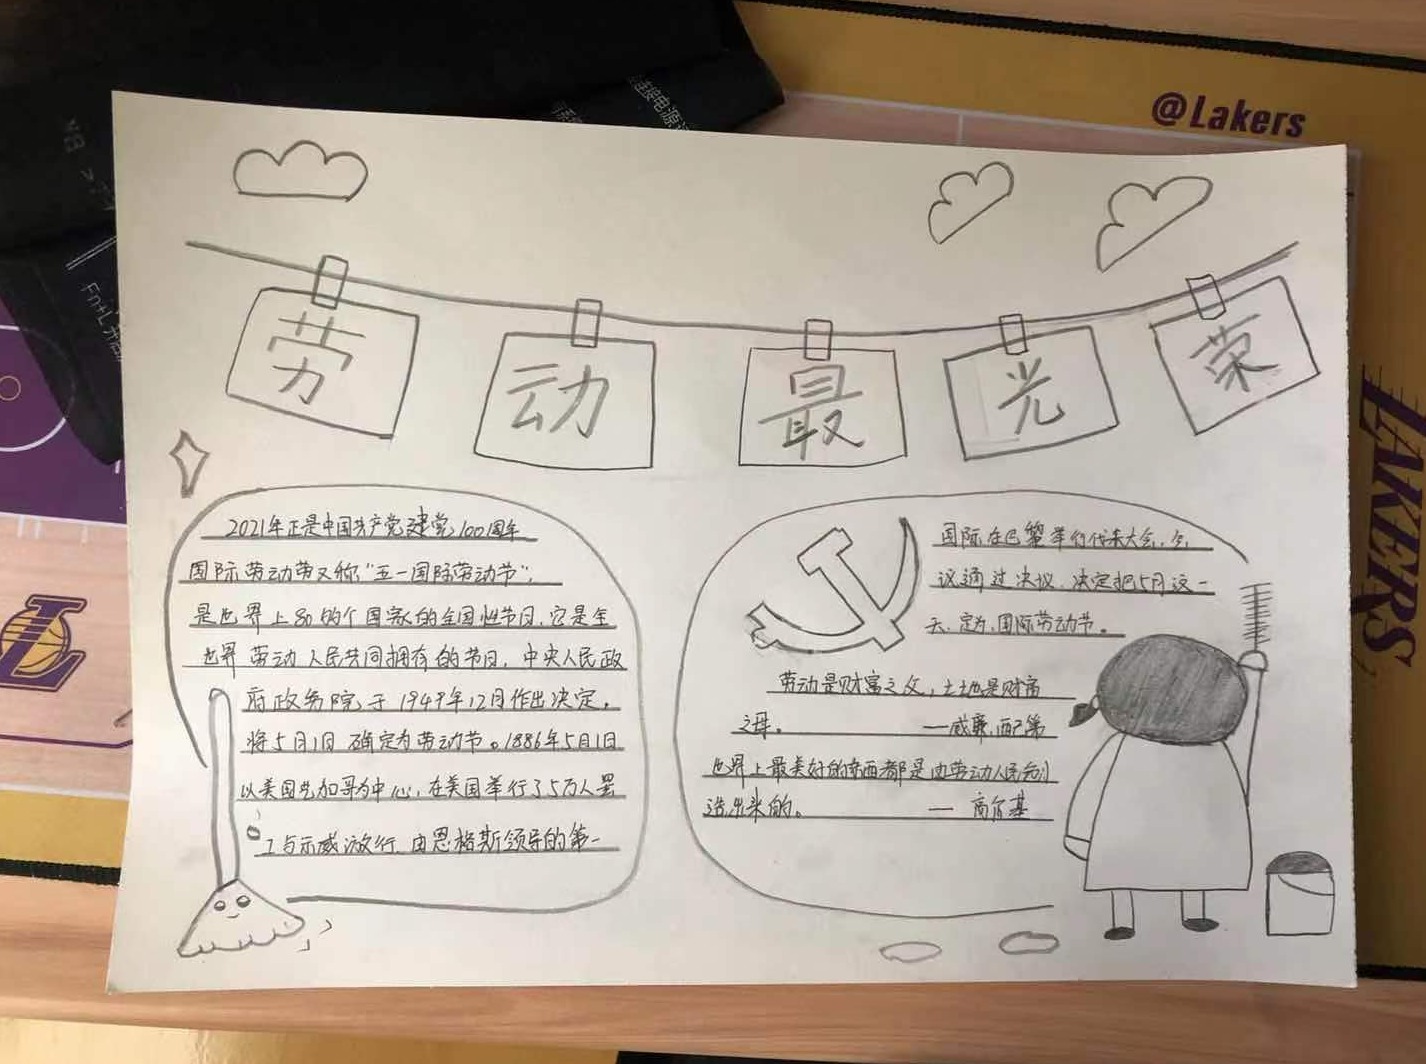 @Lakers
LAKERS
L
连接电源
Fn+L
劳动最光荣
2021年正是中国共产党建党100周年
国际劳动节又称"五一国际劳动节",
是世界上80的个国家的全国性节日,它是全
世界劳动人民共同拥有的节日,中央人民政
府政务院于1949年12月作出决定,
将5月1日确定为劳动节。1886年5月1日
以美国芝加哥为中心,在美国举行了5万人罢
工与示威游行,由恩格斯领导的第一
国际在巴黎举行代表大会,会
议通过决议,决定把5月这一
天,定为,国际劳动节。
劳动是财富之父,土地是财富
之母。 —威廉.配第
世界上最美好的东西都是由劳动人民创
造出来的。 — 高尔基